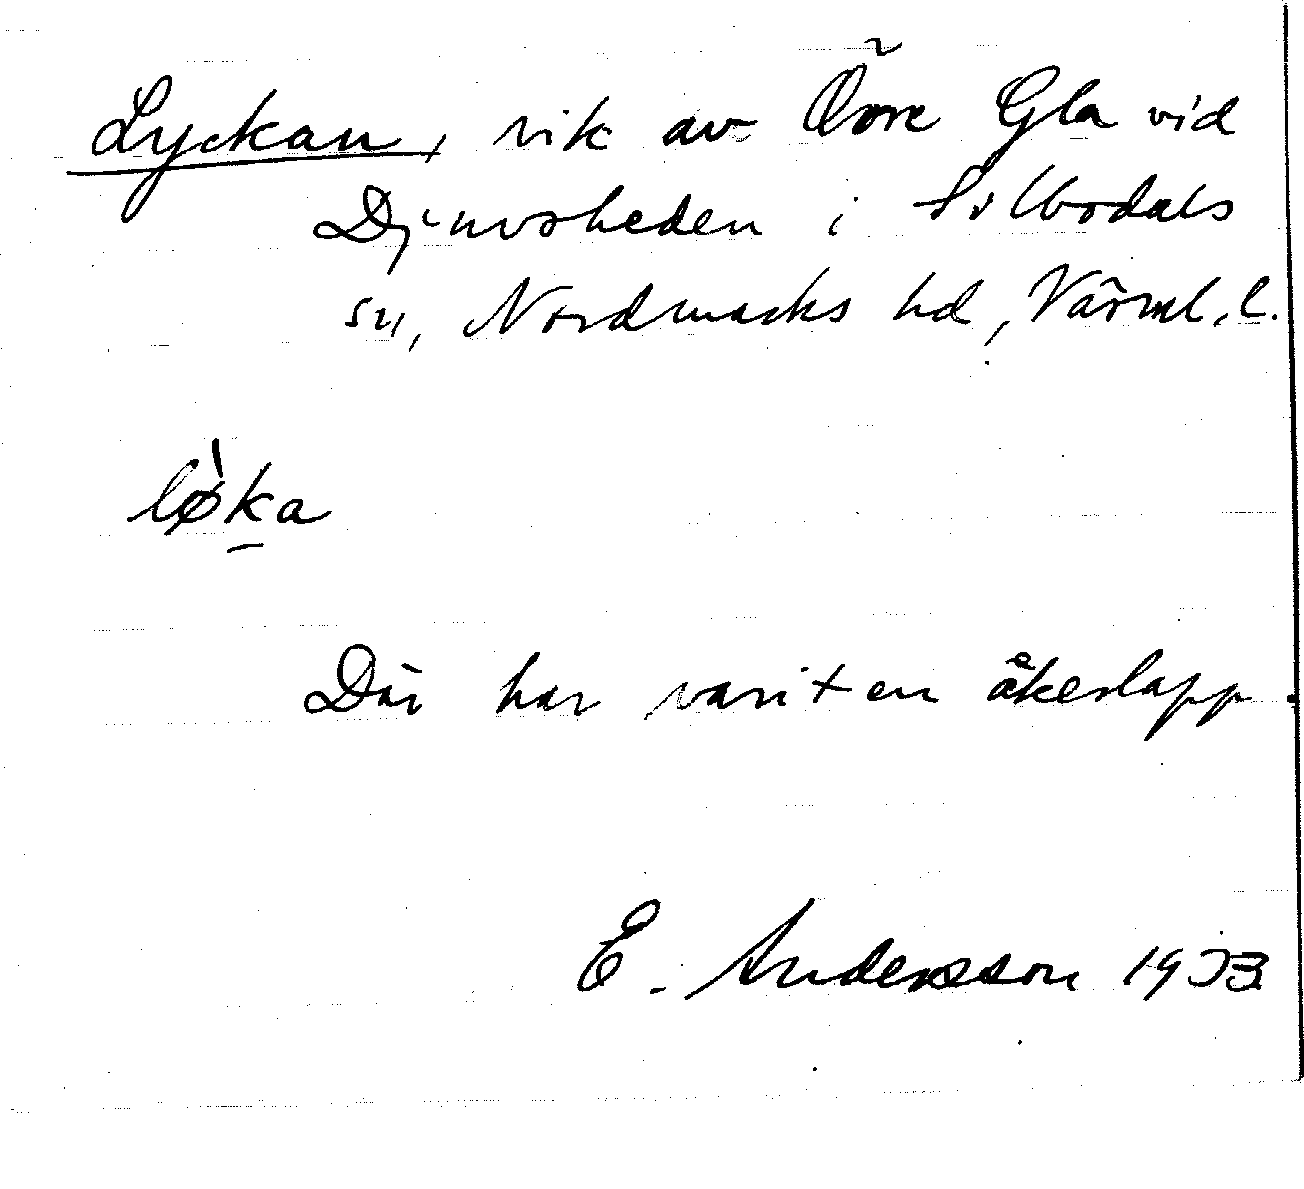 Lyckan, vik av Övre Gla vid
Djuvsheden i Silbodals
sn, Nordmarks hd, Värml. l.
lø̀ka
Där har varit en åkerlapp.
E. Andersson 1933